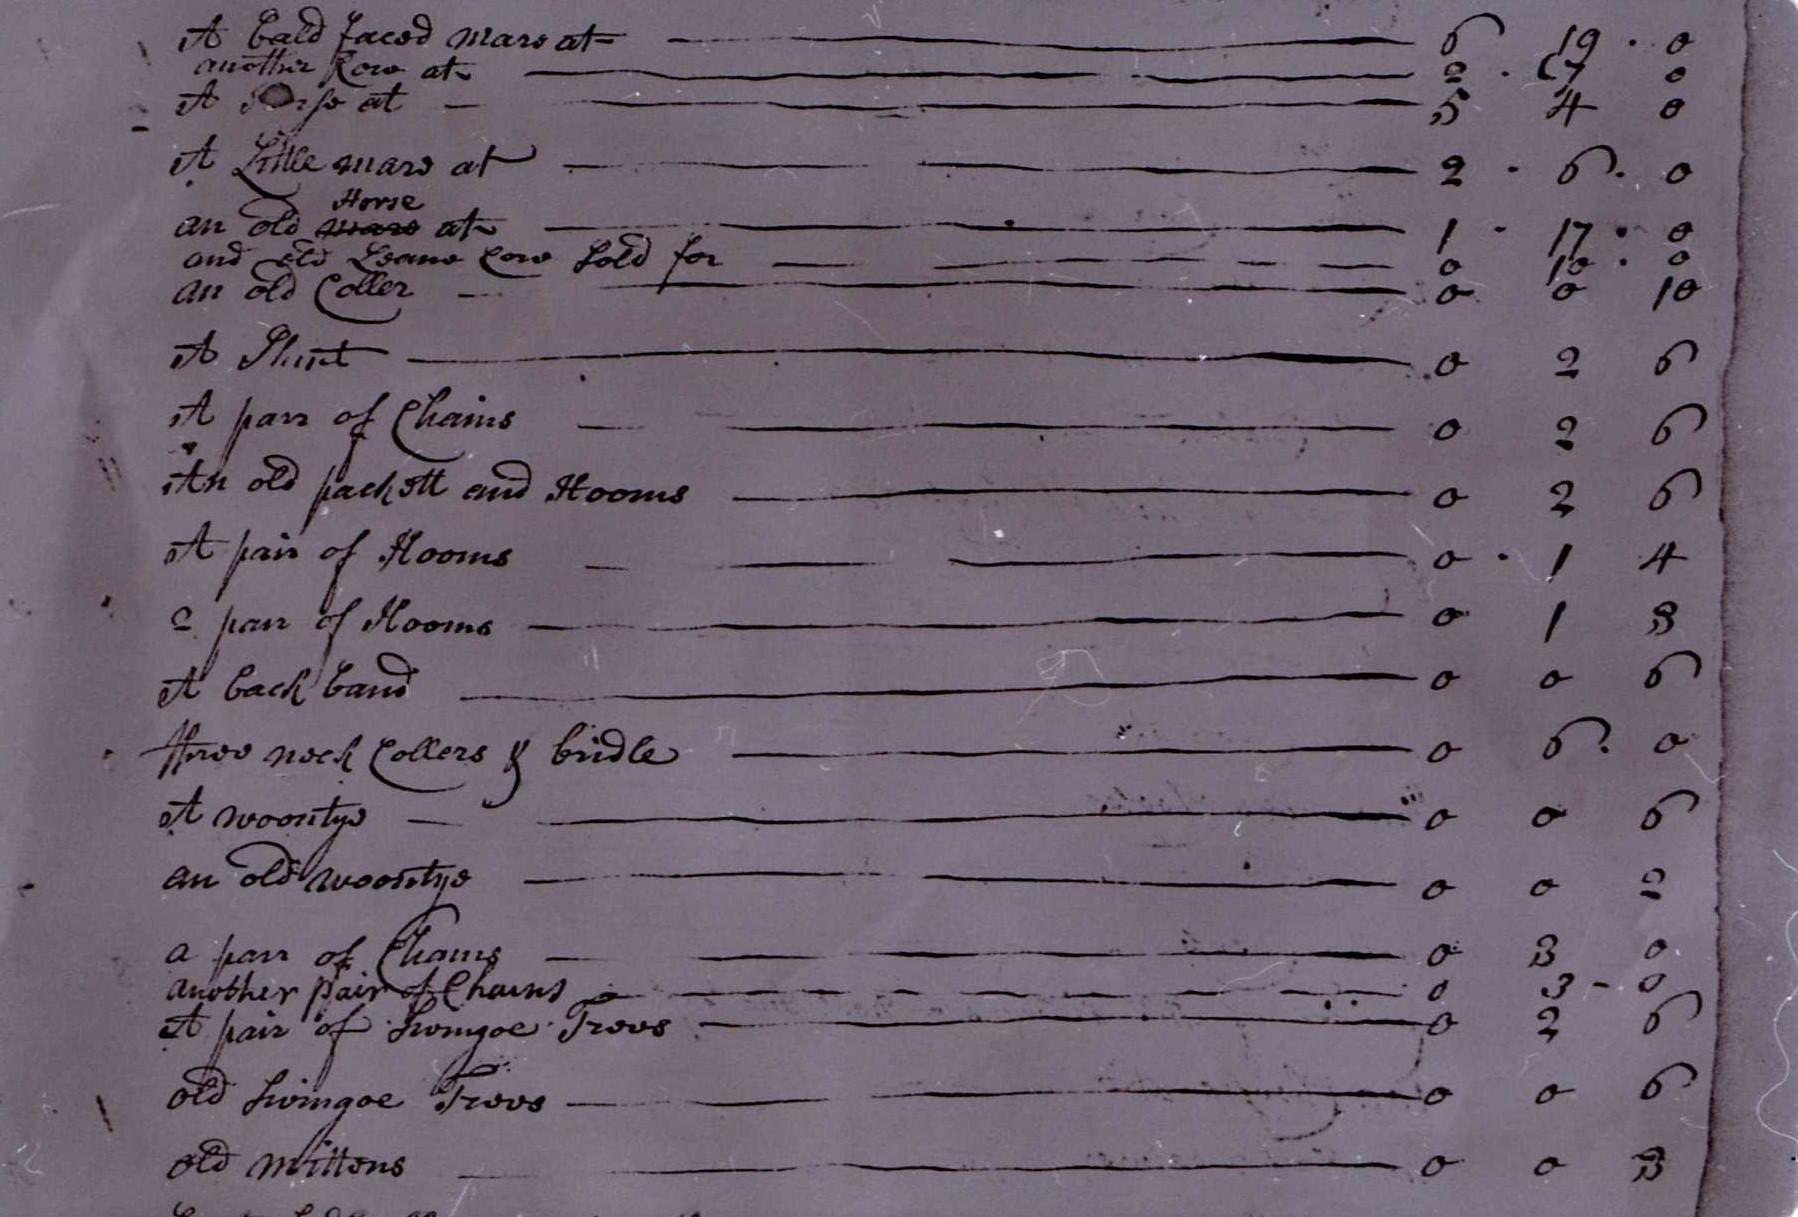 A bald faced mare at 6 19 . 0
another Cow at 2 . 17 0
A Horse at 5 4 0
A Little mare at 2 . 6 . 0
Horse
an old mare at 1 . 17 . 0
and old Leane Cow sold for 0 10 . 0
an old Coller 0 0 10
A 0 2 6
A parr of Chains 0 2 6
An old packett and Hooms 0 2 6
A pair of Hooms 0 . 1 4
2 parr of Hooms 0 1 8
A back band 0 0 6
three neck Collers & bridle 0 6 . 0
A woontye 0 0 6
an old woontye 0 0 2
a parr of Chains 0 3 0
another pair of Chains 0 3 - 0
A pair of Swingoe Trees 0 2 6
old Swingoe Trees 0 0 6
old mittens 0 0 3